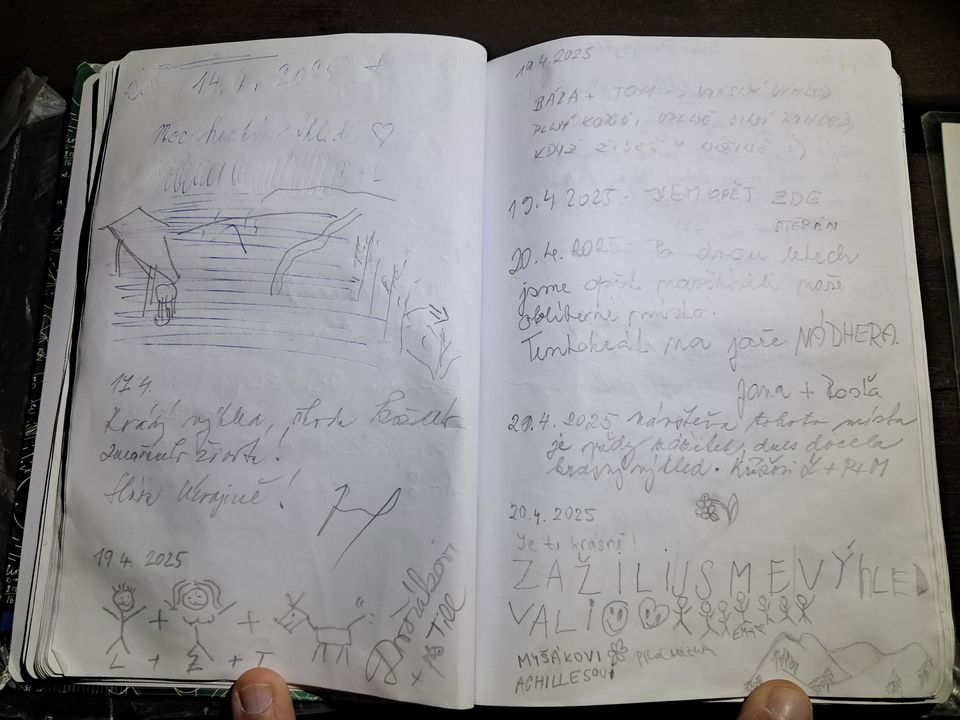 14. 1. 2025
Moc hezký výhled ♡
17.4.
Krásný výhled, škoda
života!
Sláva Ukrajině!
19.4 2025
L + Z + T
Dvořákovi
+ Till
19.4.2025
BÁRA + TOM → KRÁSNÝ VÝHLED
PLNÝ
KDYŽ :)
19.4.2025 - JSEM OPĚT ZDE
ŠTĚPÁN
20.4.2025 - Po dvou letech
jsme opět navštívili naše
oblíbené místo.
Tentokrát na jaře NÁDHERA.
Jana + Rosťa
20.4.2025 návštěva tohoto místa
je vždy zážitek, dnes docela
krásný výhled.
20.4.2025
Je tu krásně!
ZAŽILI JSME VÝHLED
VALI
EMA
MYŠÁKOVI PROCHÁZKA
ACHILLESOVI